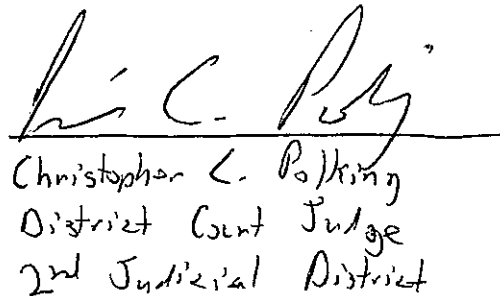 C.
Christopher C. Polking
District Court Judge
2nd Judicial District